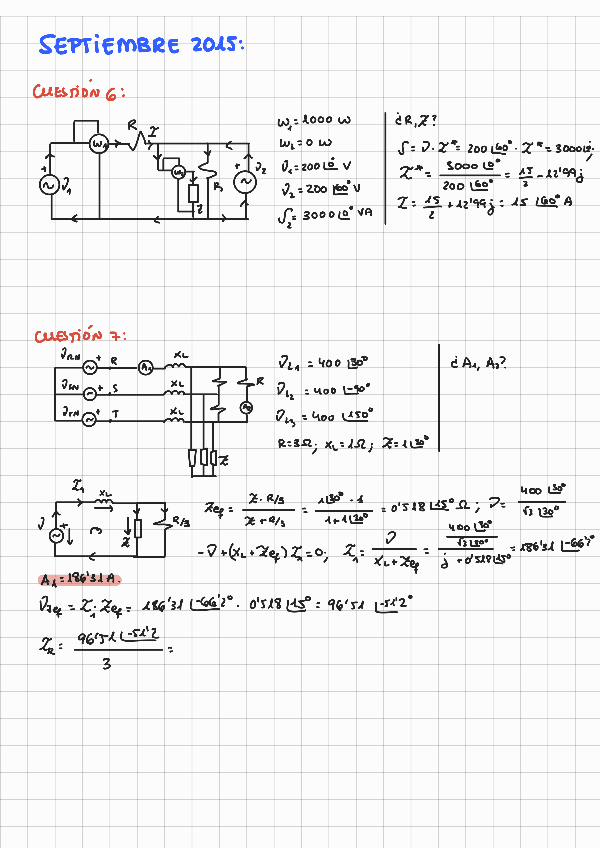 SEPTIEMBRE 2015:
CUESTIÓN 6:
W₁ = 1000 W
W₂ = 0 W
V₁ = 200 ∠0° V
V₂ = 200 ∠60° V
S₂ = 3000 ∠0° VA
¿R, Z?
S = V · I* = 200 ∠60° · I* = 3000 ∠0°;
I* = 3000 ∠0° / 200 ∠60° = 15/2 - 12'99j
I = 15/2 + 12'99j = 15 ∠60° A
W₁ R I W₂ R Z V₁ V₂ + +
CUESTIÓN 7:
V_RN + R A₁ X_L
V_SN + S X_L
V_TN + T X_L
R A₂ Z
V_L1 = 400 ∠30°
V_L2 = 400 ∠-90°
V_L3 = 400 ∠150°
R = 3Ω; X_L = 1Ω; Z = 1 ∠30°
¿A₁, A₂?
I₁ X_L V + Z R/3
Z_ef = Z · R/3 / Z + R/3 = 1 ∠30° · 1 / 1 + 1 ∠30° = 0'518 ∠15° Ω; V = 400 ∠30° / √3 ∠30°
-V + (X_L + Z_ef) I₁ = 0; I₁ = V / X_L + Z_ef = 400 ∠30° / √3 ∠30° / j + 0'518 ∠15° = 186'31 ∠-66'2°
A₁ = 186'31 A.
V_Zef = I₁ · Z_ef = 186'31 ∠-66'2° · 0'518 ∠15° = 96'51 ∠-51'2°
I_R = 96'51 ∠-51'2 / 3 =